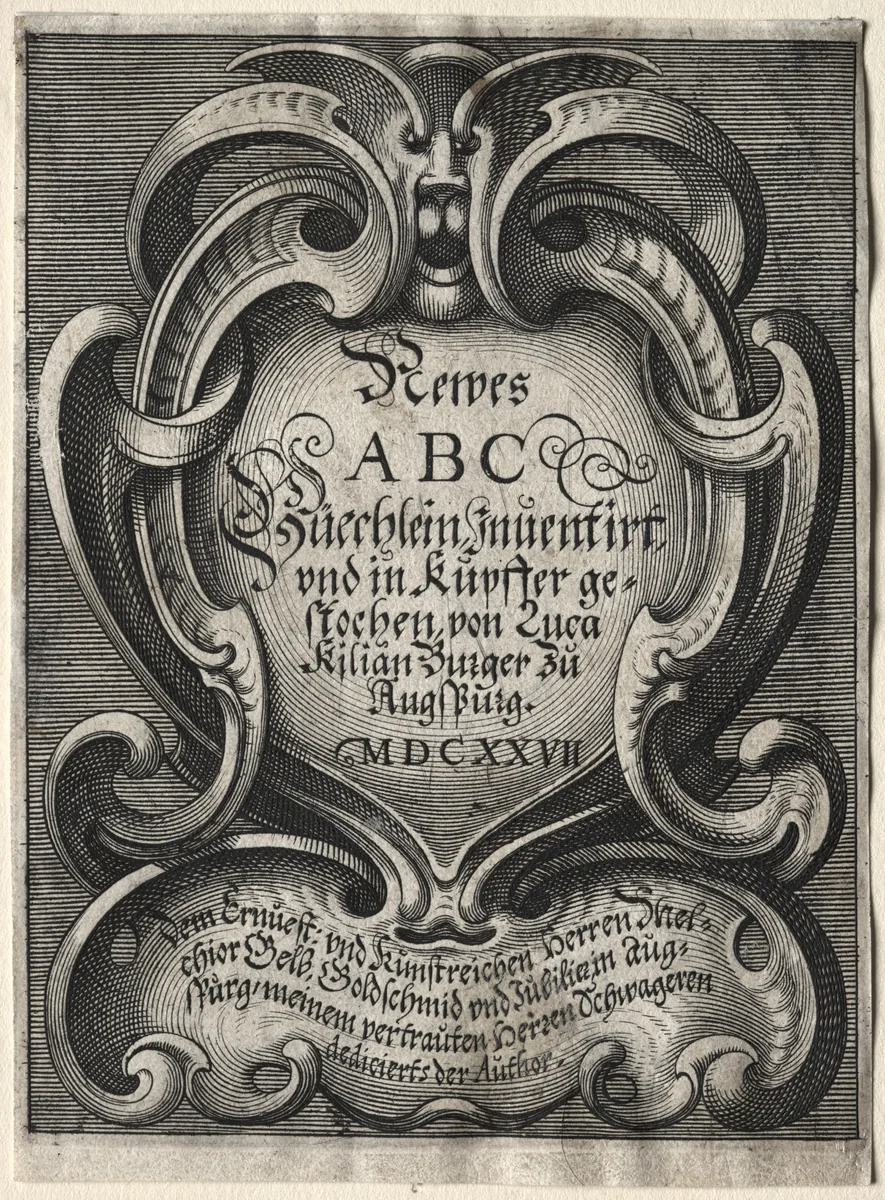 Newes
ABC
Büechlein, Inuentirt,
vnd in Kupffer ge-
stochen, von Luca
Kilian Burger zu
Augspurg.
MDCXXVII
Dem Ernuest: vnd Kunstreichen Herren Mel-
chior Gelb, Goldschmid vnd Jubilier in Aug-
spurg, meinem vertrauten Herren Schwageren
dediciert's der Author.